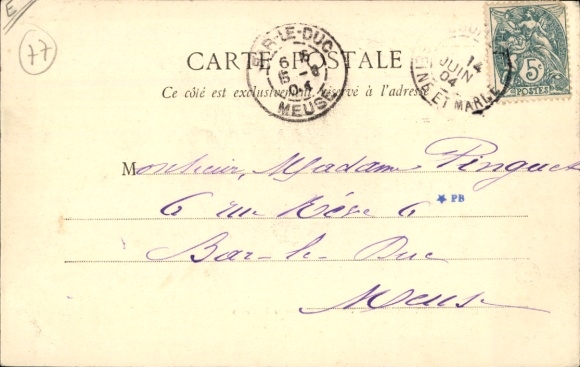 E
77
CARTE POSTALE
Ce côté est exclusivement réservé à l'adresse
BAR-LE-DUC
6 5
15 -6
04
MEUSE
14
JUIN
04
SEINE ET MARNE
5c
POSTES
Monsieur, Madame Pinguet
6 rue Rève 6
PB
Bar-le-Duc
Meuse